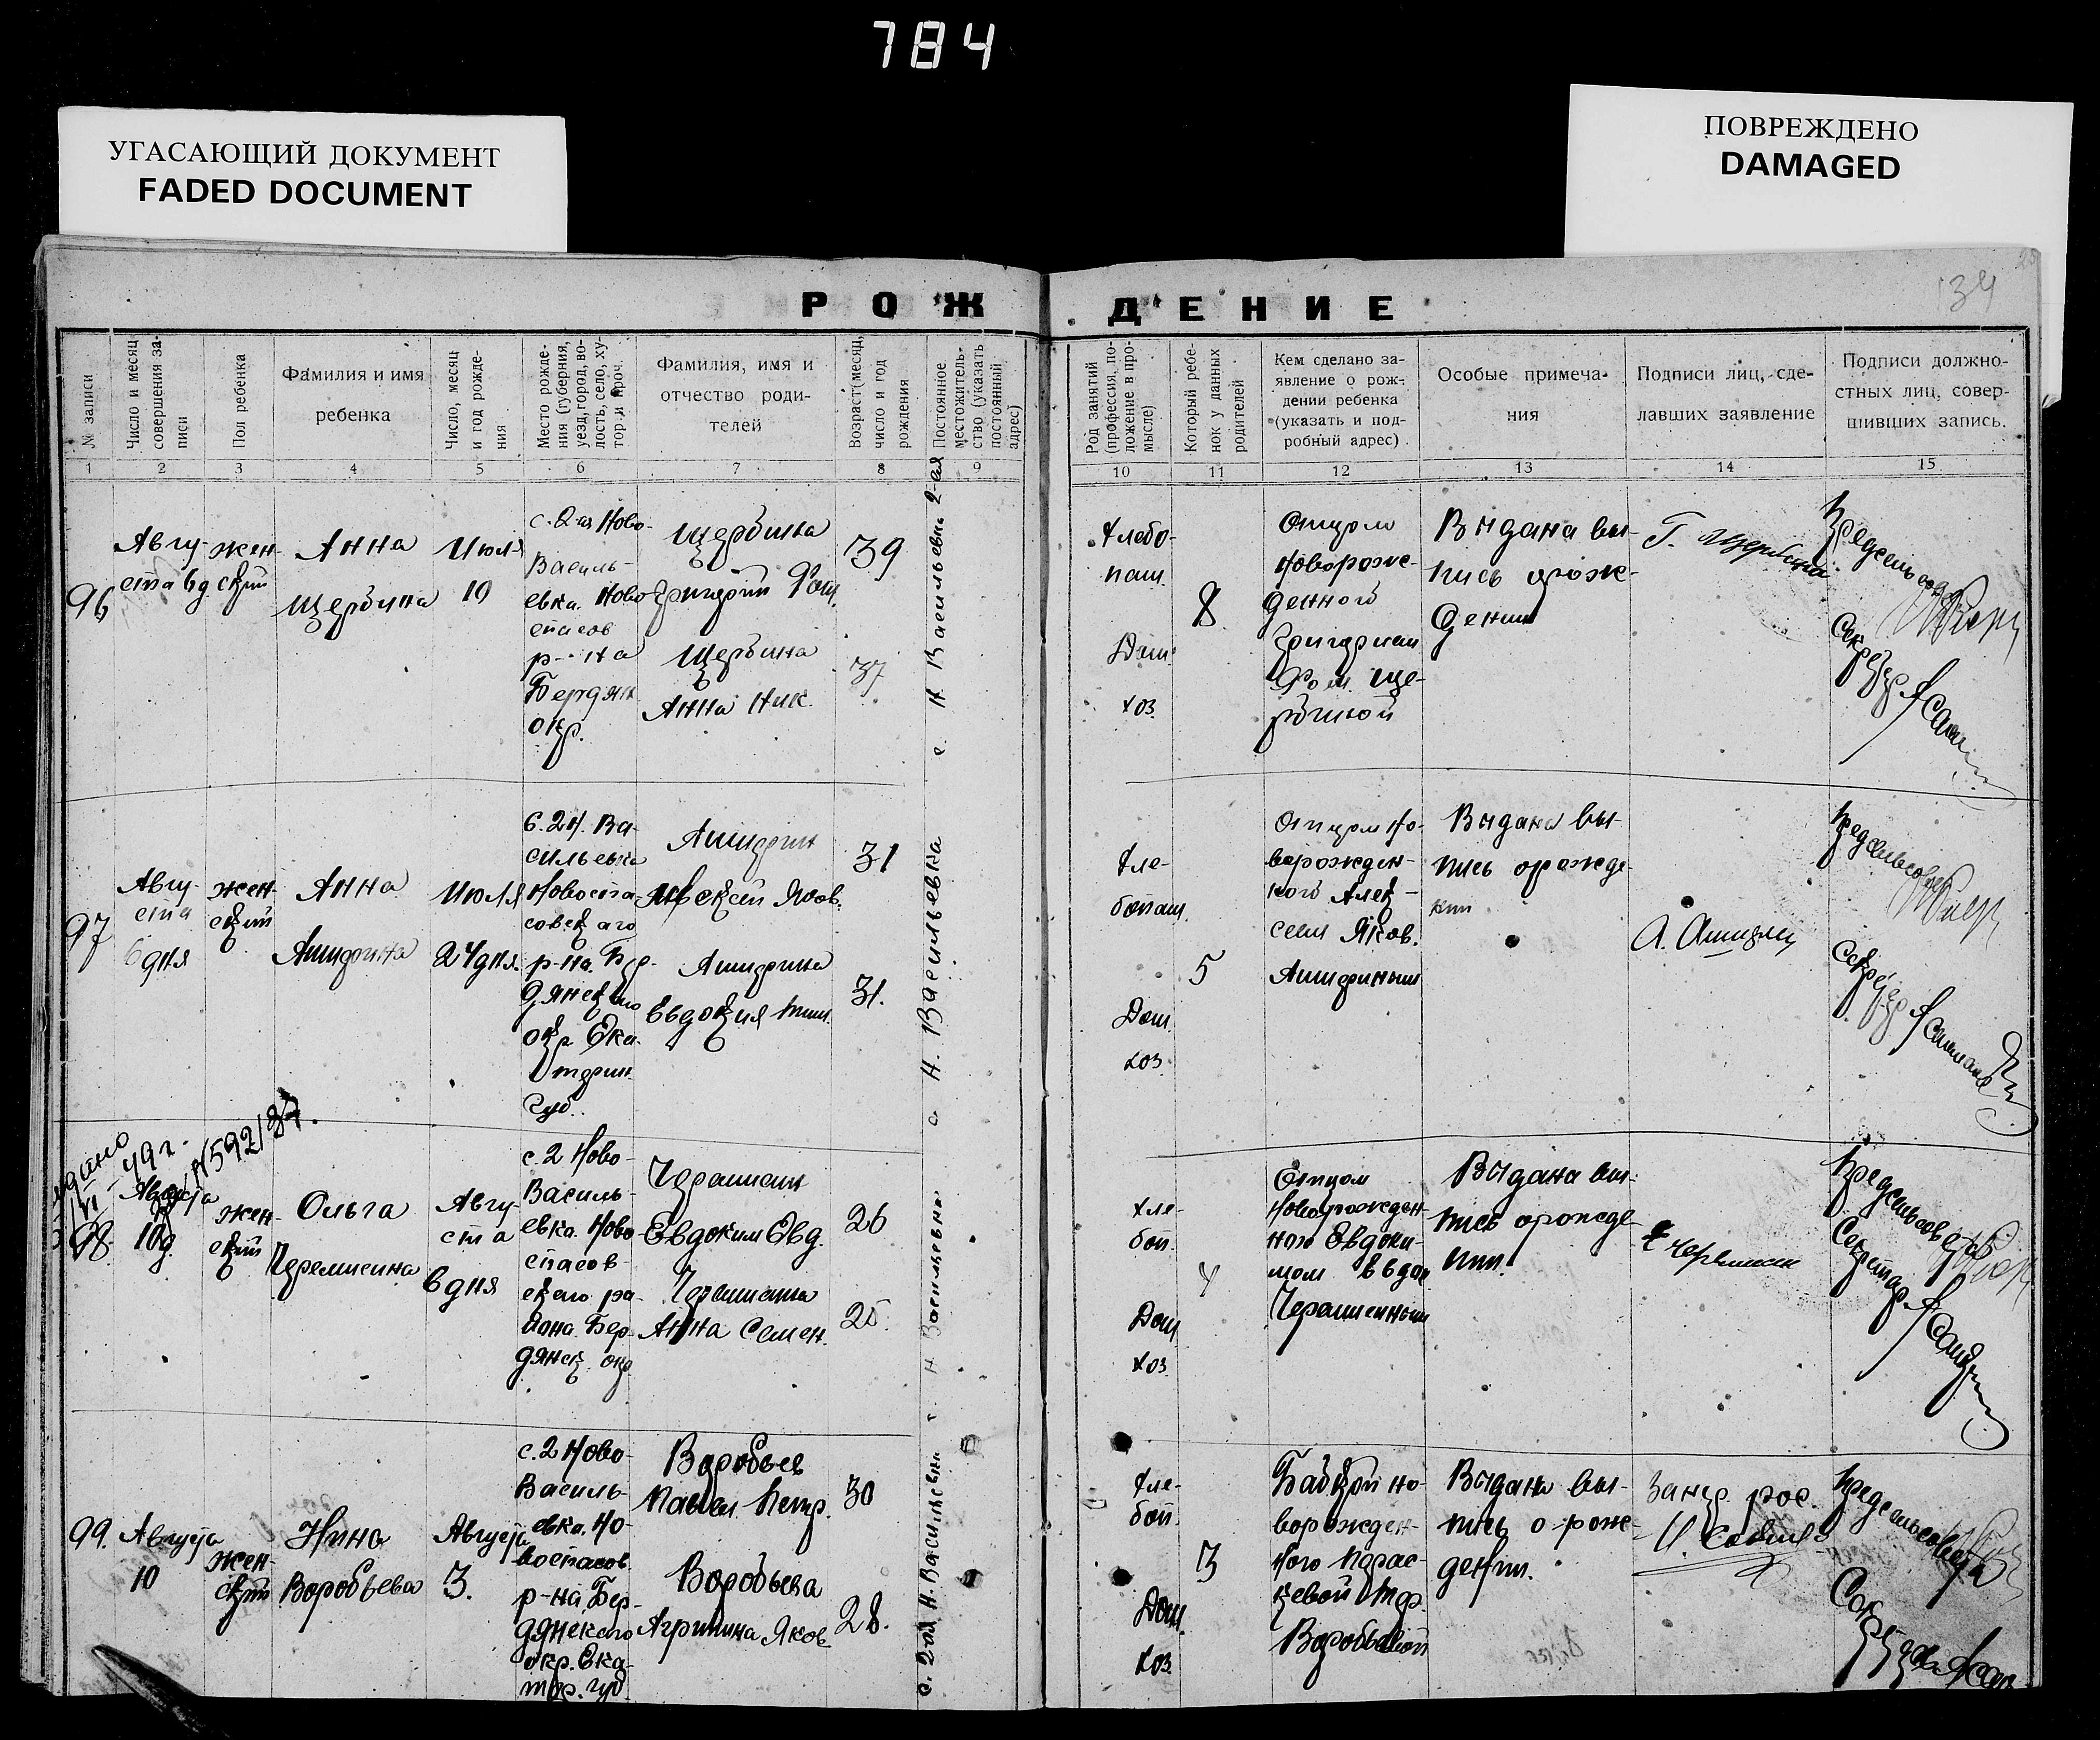 784
УГАСАЮЩИЙ ДОКУМЕНТ
FADED DOCUMENT
ПОВРЕЖДЕНО
DAMAGED
134
РОЖДЕНИЕ
№ записи
Число и месяц
совершения за-
писи
Пол ребенка
Фамилия и имя
ребенка
Число, месяц
и год рожде-
ния
Место рожде-
ния (губерния,
уезд, город, во-
лость, село, ху-
тор и проч.
Фамилия, имя и
отчество роди-
телей
Возраст (месяц,
число и год
рождения
Постоянное
местожитель-
ство (указать
постоянный
адрес)
Род занятий
(профессия, по-
ложение в про-
мысле)
Который ребе-
нок у данных
родителей
Кем сделано за-
явление о рож-
дении ребенка
(указать и под-
робный адрес)
Особые примеча-
ния
Подписи лиц, сде-
лавших заявление
Подписи должно-
стных лиц, совер-
шивших запись.
1 2 3 4 5 6 7 8 9 10 11 12 13 14 15
96
Авгу-
ста 6д
жен-
ский
Анна
Щербина
Июля
10
с. 2-я Ново-
Василь-
евка. Ново
спасов
р-на
Бердян
окр.
Щербина
Григорий Ром.
Щербина
Анна Ник.
39
37
с. Н. Васильевка 2-ая
Хлебо-
паш.
Дом.
хоз.
8
Отцом
новорож-
денной
Григорием
Ром. Ще-
рбиной
Выдана вы-
пись о рож-
дении
Г. Щербина
Предсельсов
Секретар
97
Авгу-
ста
6 дня
жен-
ский
Анна
Июля
24 дня.
с. 2 Н. Ва-
сильевка
Новоспа-
совского
р-на. Бер-
дянского
окр. Ека-
терин.
Губ.
Алексей Яков.
Евдокия
31
31.
с. Н. Васильевка
Хле-
бопаш.
Дом.
хоз.
5
Отцом но-
ворожден-
ного Алек-
сеем Яков.
Выдана вы-
пись о рожде-
нии
Предсельсовет
Секретар
Выдано
49 г.
N592/37.
98.
Августа
10д.
жен-
ский
Ольга
Черемисина
Авгу-
ста
6 дня
с. 2 Ново-
Василь-
евка. Ново
спасов-
ского ра-
йона. Бер-
дянск. окр.
Черемисин
Евдоким Евд.
Черемисина
Анна Семен.
26
25.
с. Н. Васильевка
Хле-
боп.
Дом.
хоз.
4
Отцом
Новорожден-
ного Евдоки-
мом Евдок
Черемисиным
Выдана вы-
пись о рожде-
нии.
Е Черемисин
Предсельсовета
Секретар
99.
Августа
10
жен-
ский
Нина
Воробьева
Августа
3.
с. 2 Ново-
Василь-
евка. Но-
воспасов.
р-на Бер-
дянского
окр. Ека-
тер. губ.
Воробьев
Павел Петр.
Воробьева
Агрипина Яков
30
28.
с. 2ая Н-Васильевка
Хле-
боп.
Дом.
хоз.
3
Бабкой но-
ворожден-
ного Парас-
кевой
Воробьевой
Выдана вы-
пись о рож-
дении.
За негр. рос.
Предсельсовета